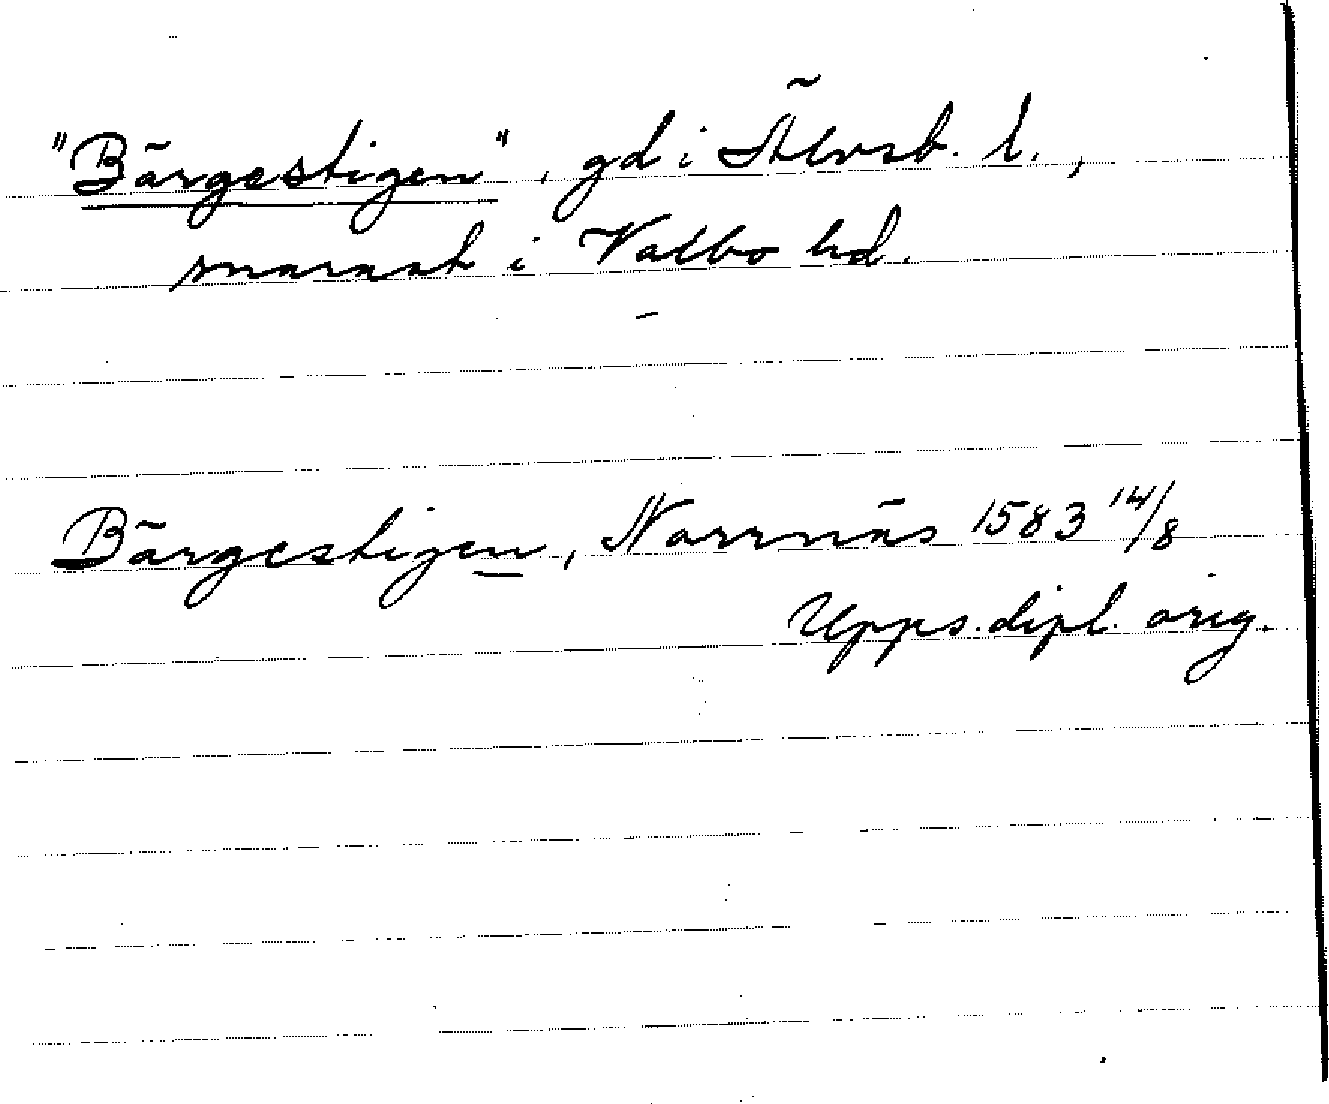 "Bärgestigen", gd i Älvsb. l.,
snarast i Valbo hd.
–
Bärgestigen, Narrnäs 1583 14/8
Upps. dipl. orig.